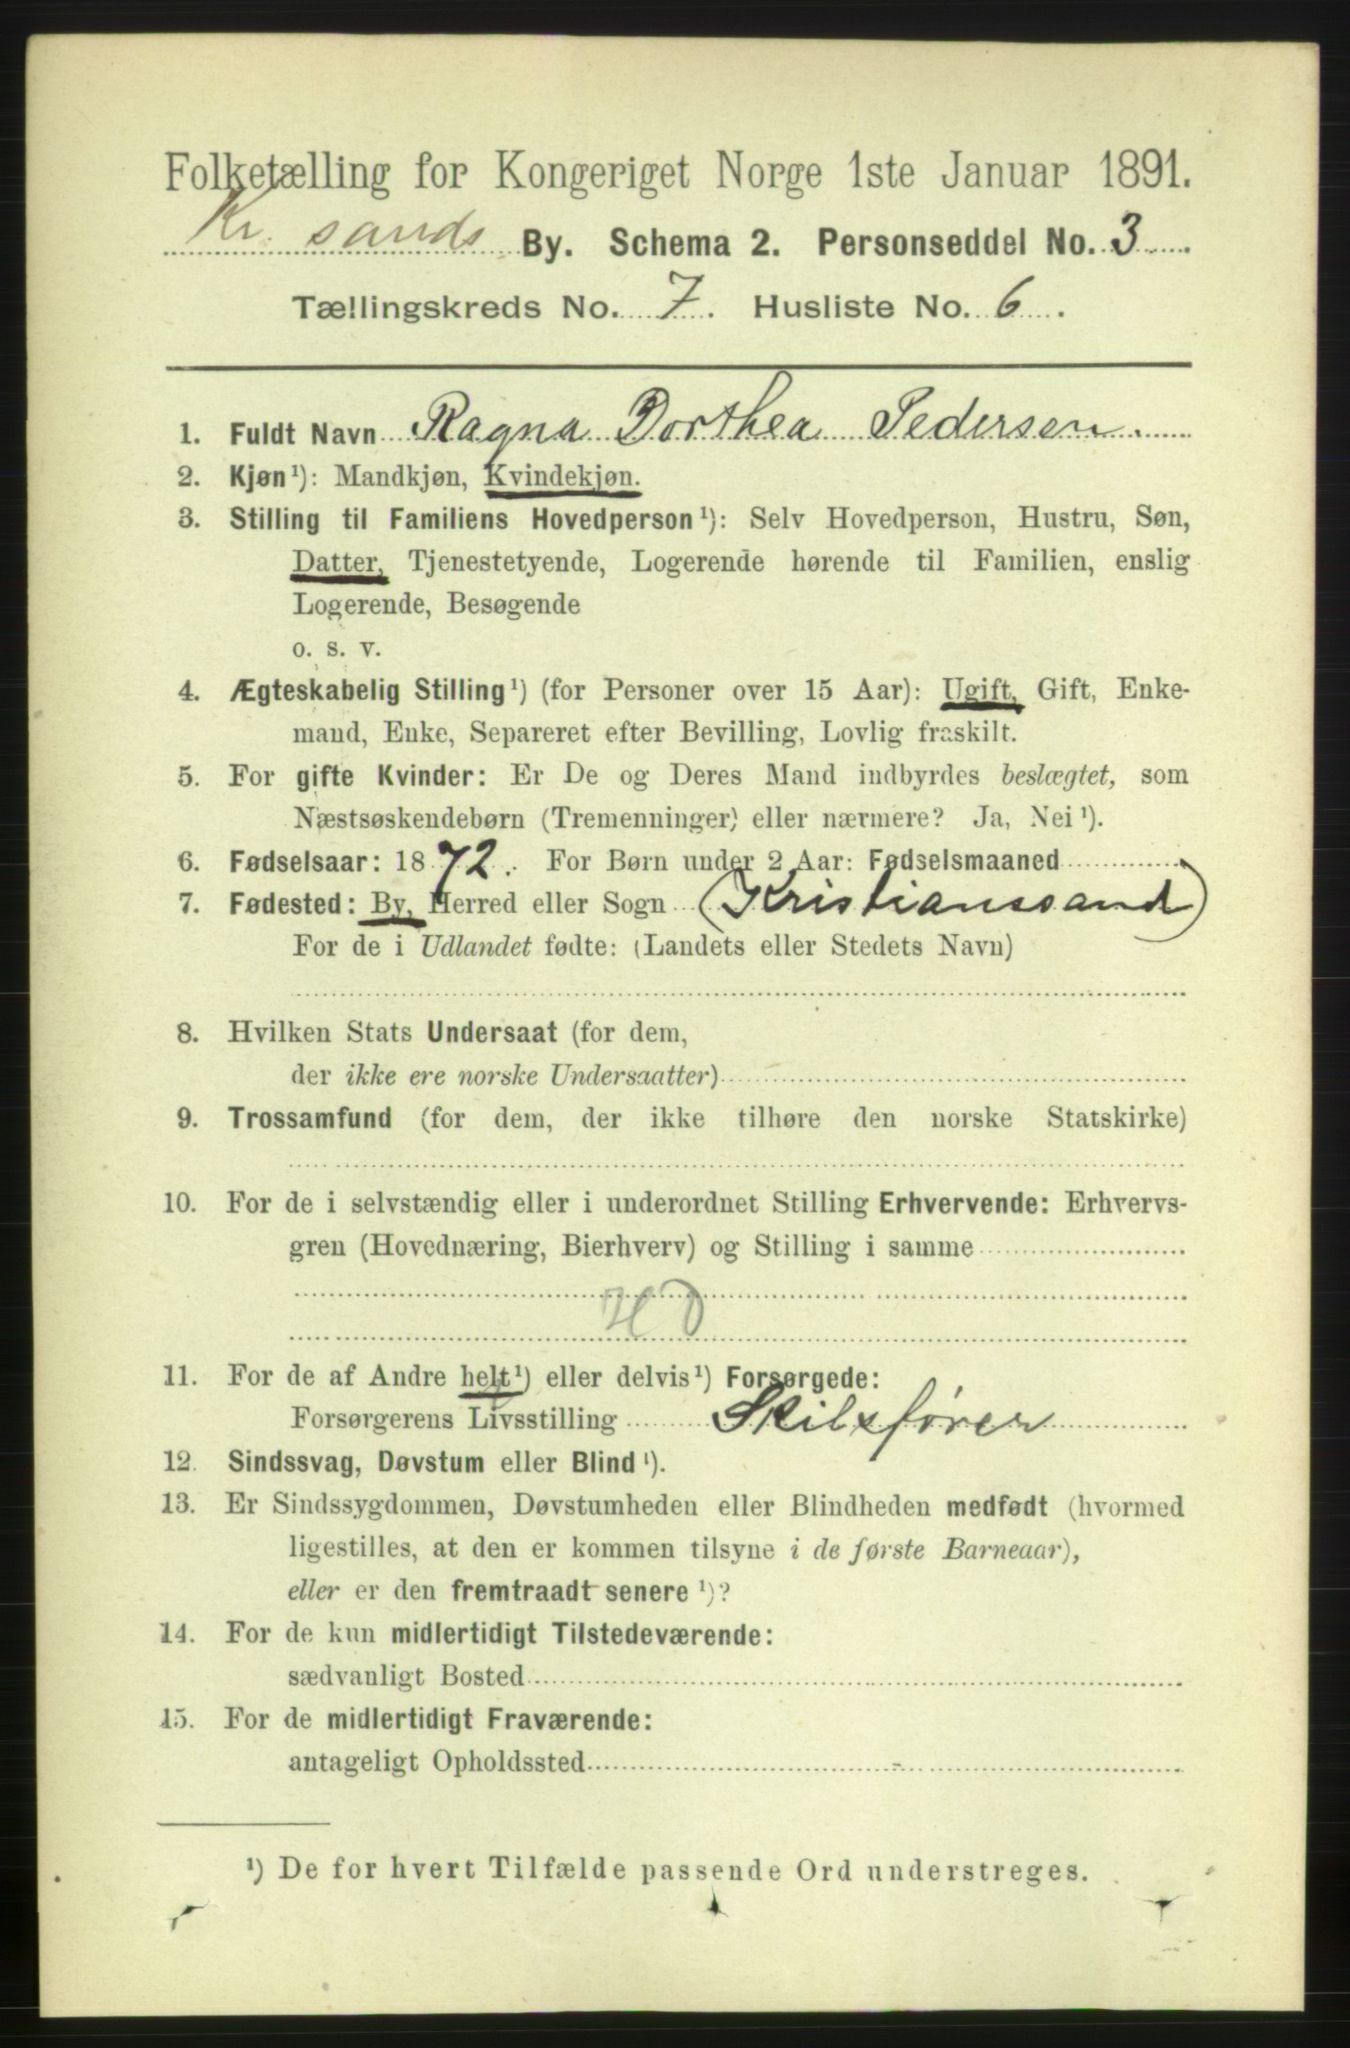 Folketælling for Kongeriget Norge 1ste Januar 1891.
Kr. sands By. Schema 2. Personseddel No. 3
Tællingskreds No. 7. Husliste No. 6.
1. Fuldt Navn Ragna Dorthea Pedersen.
2. Kjøn¹): Mandkjøn, Kvindekjøn.
3. Stilling til Familiens Hovedperson¹): Selv Hovedperson, Hustru, Søn,
Datter, Tjenestetyende, Logerende hørende til Familien, enslig
Logerende, Besøgende
o. s. v.
4. Ægteskabelig Stilling¹) (for Personer over 15 Aar): Ugift, Gift, Enke-
mand, Enke, Separeret efter Bevilling, Lovlig fraskilt.
5. For gifte Kvinder: Er De og Deres Mand indbyrdes beslægtet, som
Næstsøskendebørn (Tremenninger) eller nærmere? Ja, Nei¹).
6. Fødselsaar: 1872. For Børn under 2 Aar: Fødselsmaaned
7. Fødested: By, Herred eller Sogn (Kristianssand)
For de i Udlandet fødte: (Landets eller Stedets Navn)
8. Hvilken Stats Undersaat (for dem,
der ikke ere norske Undersaatter)
9. Trossamfund (for dem, der ikke tilhøre den norske Statskirke)
10. For de i selvstændig eller i underordnet Stilling Erhvervende: Erhvervs-
gren (Hovednæring, Bierhverv) og Stilling i samme
11. For de af Andre helt¹) eller delvis¹) Forsørgede:
Forsørgerens Livsstilling Skibsfører
12. Sindssvag, Døvstum eller Blind¹).
13. Er Sindssygdommen, Døvstumheden eller Blindheden medfødt (hvormed
ligestilles, at den er kommen tilsyne i de første Barneaar),
eller er den fremtraadt senere¹)?
14. For de kun midlertidigt Tilstedeværende:
sædvanligt Bosted
15. For de midlertidigt Fraværende:
antageligt Opholdssted
¹) De for hvert Tilfælde passende Ord understreges.